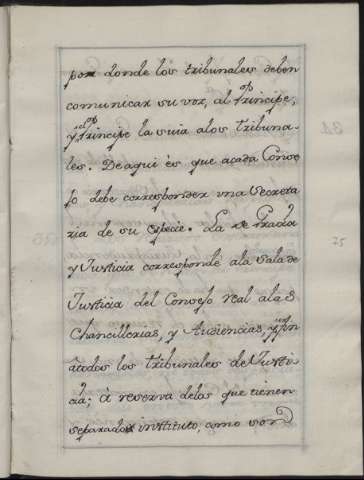 por donde los tribunales deben
comunicar su voz, al Principe,
y el Principe la suia alos tribuna-
les. De aqui ès que acada Conse
jo debe corresponder una Secreta
ria de su especie. La de Gracia
y Justicia corresponde ala Sala de
Justicia del Consejo real alas
Chancillerias, y Audiencias, y
atodos los tribunales de Justi-
cia; à reserva delos que tienen
separado instituto, como son
25